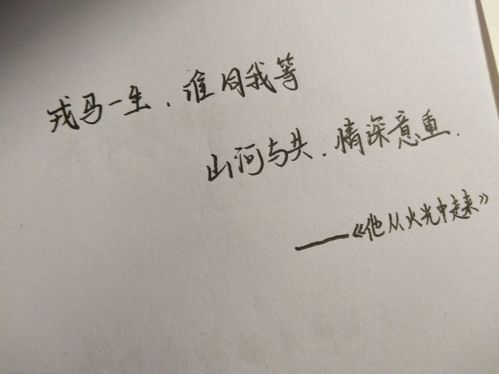 戎马一生，谁同我等
山河与共，情深意重.
——《他从火光中走来》